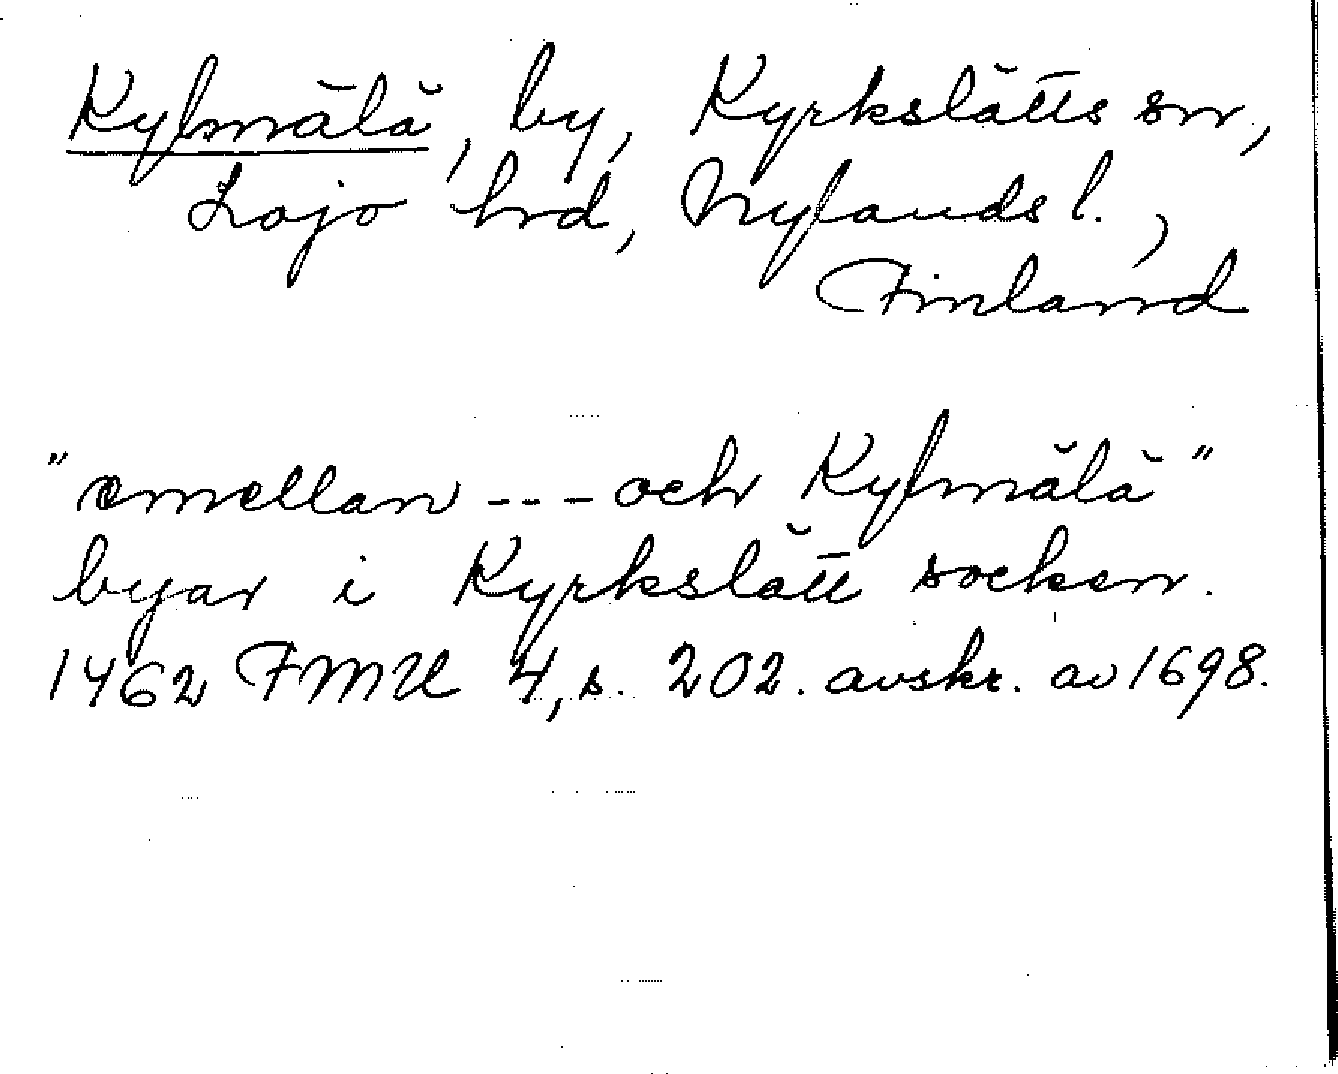 Kylmälä, by, Kyrkslätts sn,
Lojo hrd, Nylands l.,
Finland
"emellan --- och Kylmälä"
byar i Kyrkslätt socken.
1462 FMU 4, s. 202. avskr. av 1698.